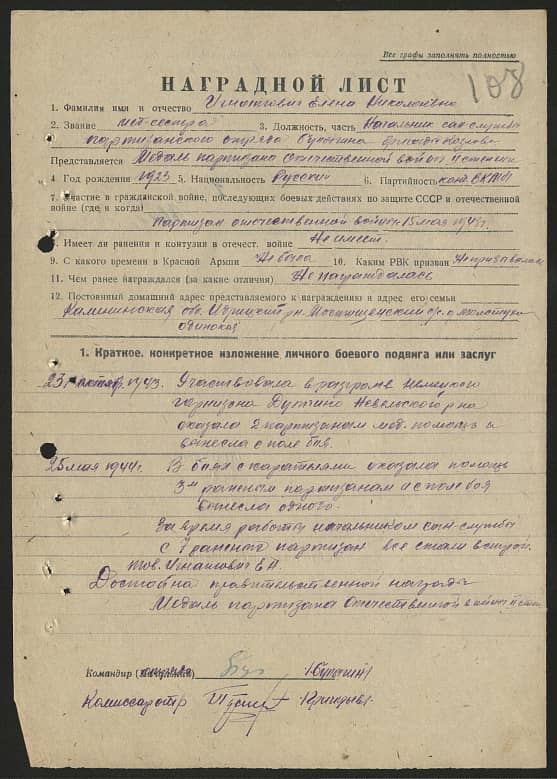 Все графы заполнять полностью
108
НАГРАДНОЙ ЛИСТ
1. Фамилия имя и отчество Игнатович Елена Николаевна
2. Звание мед-сестра 3. Должность, часть Начальник сан-службы
партизанского отряда Бутенина
Представляется Медаль партизана Отечественной войны II степени
4. Год рождения 1923 5. Национальность Русская 6. Партийность канд. ВКП(б)
7. Участие в гражданской войне, последующих боевых действиях по защите СССР и отечественной
войне (где и когда)
Партизан отечественной войны с 15 мая 1943 г.
8. Имеет ли ранения и контузии в отечест. войне Не имеет.
9. С какого времени в Красной Армии Не была 10. Каким РВК призван Не призывалась
11. Чем ранее награждался (за какие отличия) Не награждалась
12. Постоянный домашний адрес представляемого к награждению и адрес его семьи
Калининская обл. Идрицкий р-н
одинокая
1. Краткое, конкретное изложение личного боевого подвига или заслуг
23 октября 1943. Участвовала в разгроме немецкого
гарнизона Невельского р-на
оказала 2 партизанам мед. помощь и
вынесла с поля боя.
25 мая 1944 г. В боях с карателями оказала помощь
3м раненым партизанам и с поля боя
вынесла одного.
За время работы начальником сан-службы
с 7 раненого партизан все стали в строй.
тов. Игнатович Е.Н.
Достойна правительственной награды
Медаль партизана Отечественной войны II степ
Командир отряда
Комиссар отр